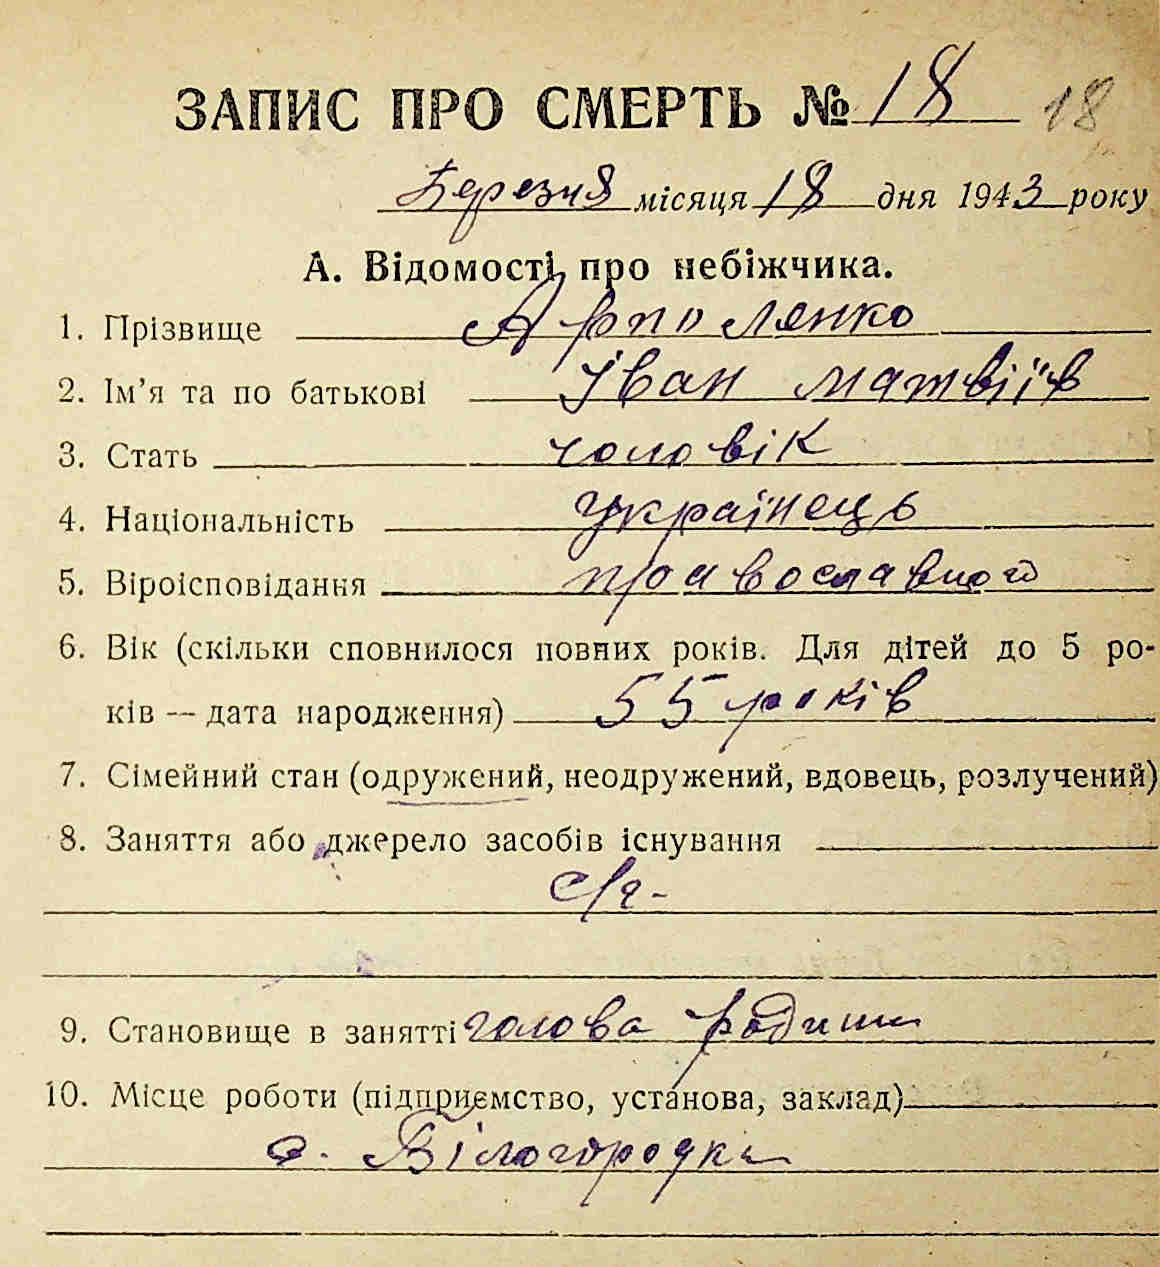 ЗАПИС ПРО СМЕРТЬ № 18 18
Березня місяця 18 дня 1943 року
А. Відомості про небіжчика.
1. Прізвище
2. Ім'я та по батькові Іван Матвіїв
3. Стать чоловік
4. Національність українець
5. Віроісповідання православного
6. Вік (скільки сповнилося повних років. Для дітей до 5 ро-
ків — дата народження) 55 років
7. Сімейний стан (одружений, неодружений, вдовець, розлучений)
8. Заняття або джерело засобів існування
с/г-
9. Становище в занятті голова родини
10. Місце роботи (підприємство, установа, заклад)
с. Білогородка